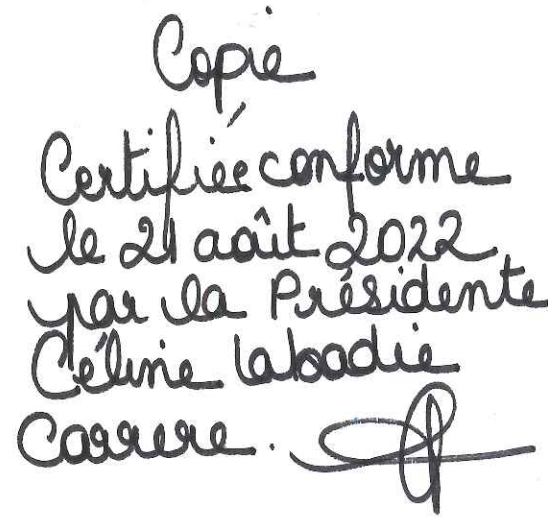 Copie
Certifiée conforme
le 21 août 2022
par la Présidente
Céline Labadie
Carrere.